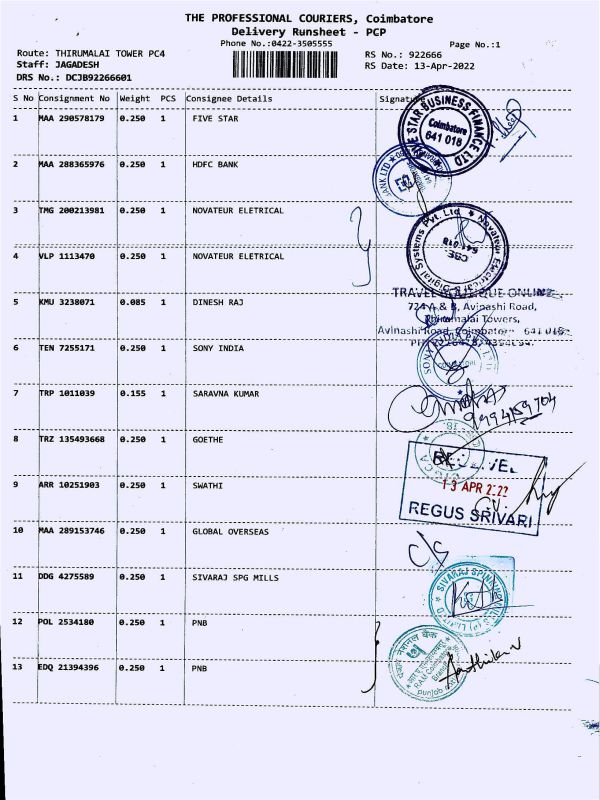 THE PROFESSIONAL COURIERS, Coimbatore
Delivery Runsheet - PCP
Phone No.:0422-3505555
Page No.:1
Route: THIRUMALAI TOWER PC4
RS No.: 922666
Staff: JAGADESH
RS Date: 13-Apr-2022
DRS No.: DCJB92266601
S No Consignment No Weight PCS Consignee Details Signature
1 MAA 290578179 0.250 1 FIVE STAR
STAR BUSINESS FINANCE LTD
Coimbatore
641 018
2 MAA 288365976 0.250 1 HDFC BANK
BANK LTD
3 TMG 200213981 0.250 1 NOVATEUR ELETRICAL
Novateur Electrical & Digital Systems Pvt. Ltd
CBE-
641 018
4 VLP 1113470 0.250 1 NOVATEUR ELETRICAL
5 KMU 3238071 0.085 1 DINESH RAJ
TRAVEL BOUTIQUE ONLINE
724 A & B, Avinashi Road,
Thirumalai Towers,
Avinashi Road, Coimbatore 641 018
6 TEN 7255171 0.250 1 SONY INDIA
SONY
7 TRP 1011039 0.155 1 SARAVNA KUMAR
9994159704
8 TRZ 135493668 0.250 1 GOETHE
9 ARR 10251903 0.250 1 SWATHI
13 APR 2022
REGUS SRIVARI
10 MAA 289153746 0.250 1 GLOBAL OVERSEAS
11 DDG 4275589 0.250 1 SIVARAJ SPG MILLS
SIVARAJ SPINNING MILLS (P) LIMITED
12 POL 2534180 0.250 1 PNB
पंजाब नैशनल बैंक
punjab
13 EDQ 21394396 0.250 1 PNB